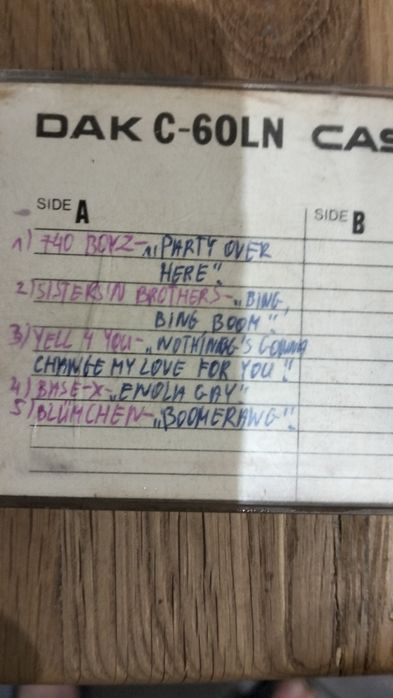 DAK C-60LN CAS
SIDE A
SIDE B
1) 740 BOYZ - „PARTY OVER
HERE"
2) SISTERS'N BROTHERS - „BING,
BING BOOM"
3) YELL 4 YOU - „NOTHINAG'S GONNA
CHANGE MY LOVE FOR YOU"
4) BASE-X - „ENOLA GAY"
5) BLÜMCHEN - „BOOMERANG"